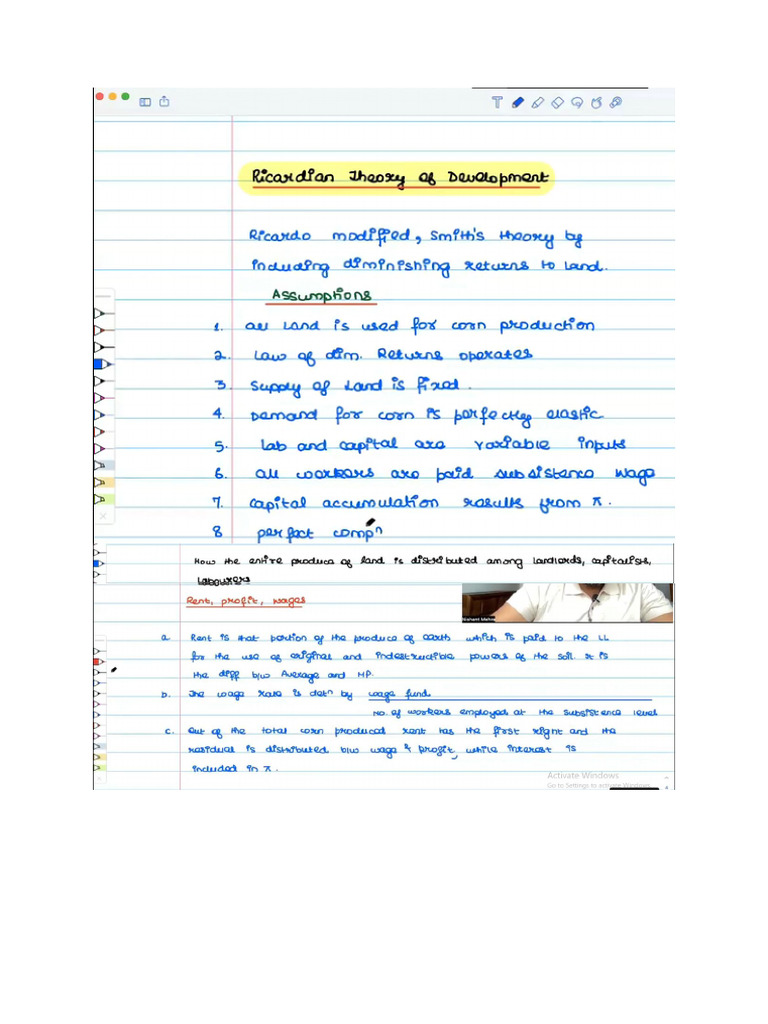 Ricardian Theory of Development
Ricardo modified, Smith's theory by
including diminishing returns to land.
Assumptions
1. all land is used for corn production
2. Law of dim. Returns operates
3. Supply of Land is fixed.
4. Demand for corn is perfectly elastic
5. Lab and capital are variable inputs
6. all workers are paid subsistence wage
7. capital accumulation results from π.
8 perfect compⁿ
How the entire produce of land is distributed among landlords, capitalists,
Labourers
Rent, profit, wages
Nishant Mehra
a. Rent is that portion of the produce of earth which is paid to the LL
for the use of original and indestructible powers of the soil. It is
the diff b/w Average and MP.
b. The wage rate is detⁿ by wage fund
No. of workers employed at the subsistence level
c. out of the total corn produced rent has the first right and the
residual is distributed b/w wage & profit, while interest is
included in π.
Activate Windows
Go to Settings to activate Windows.